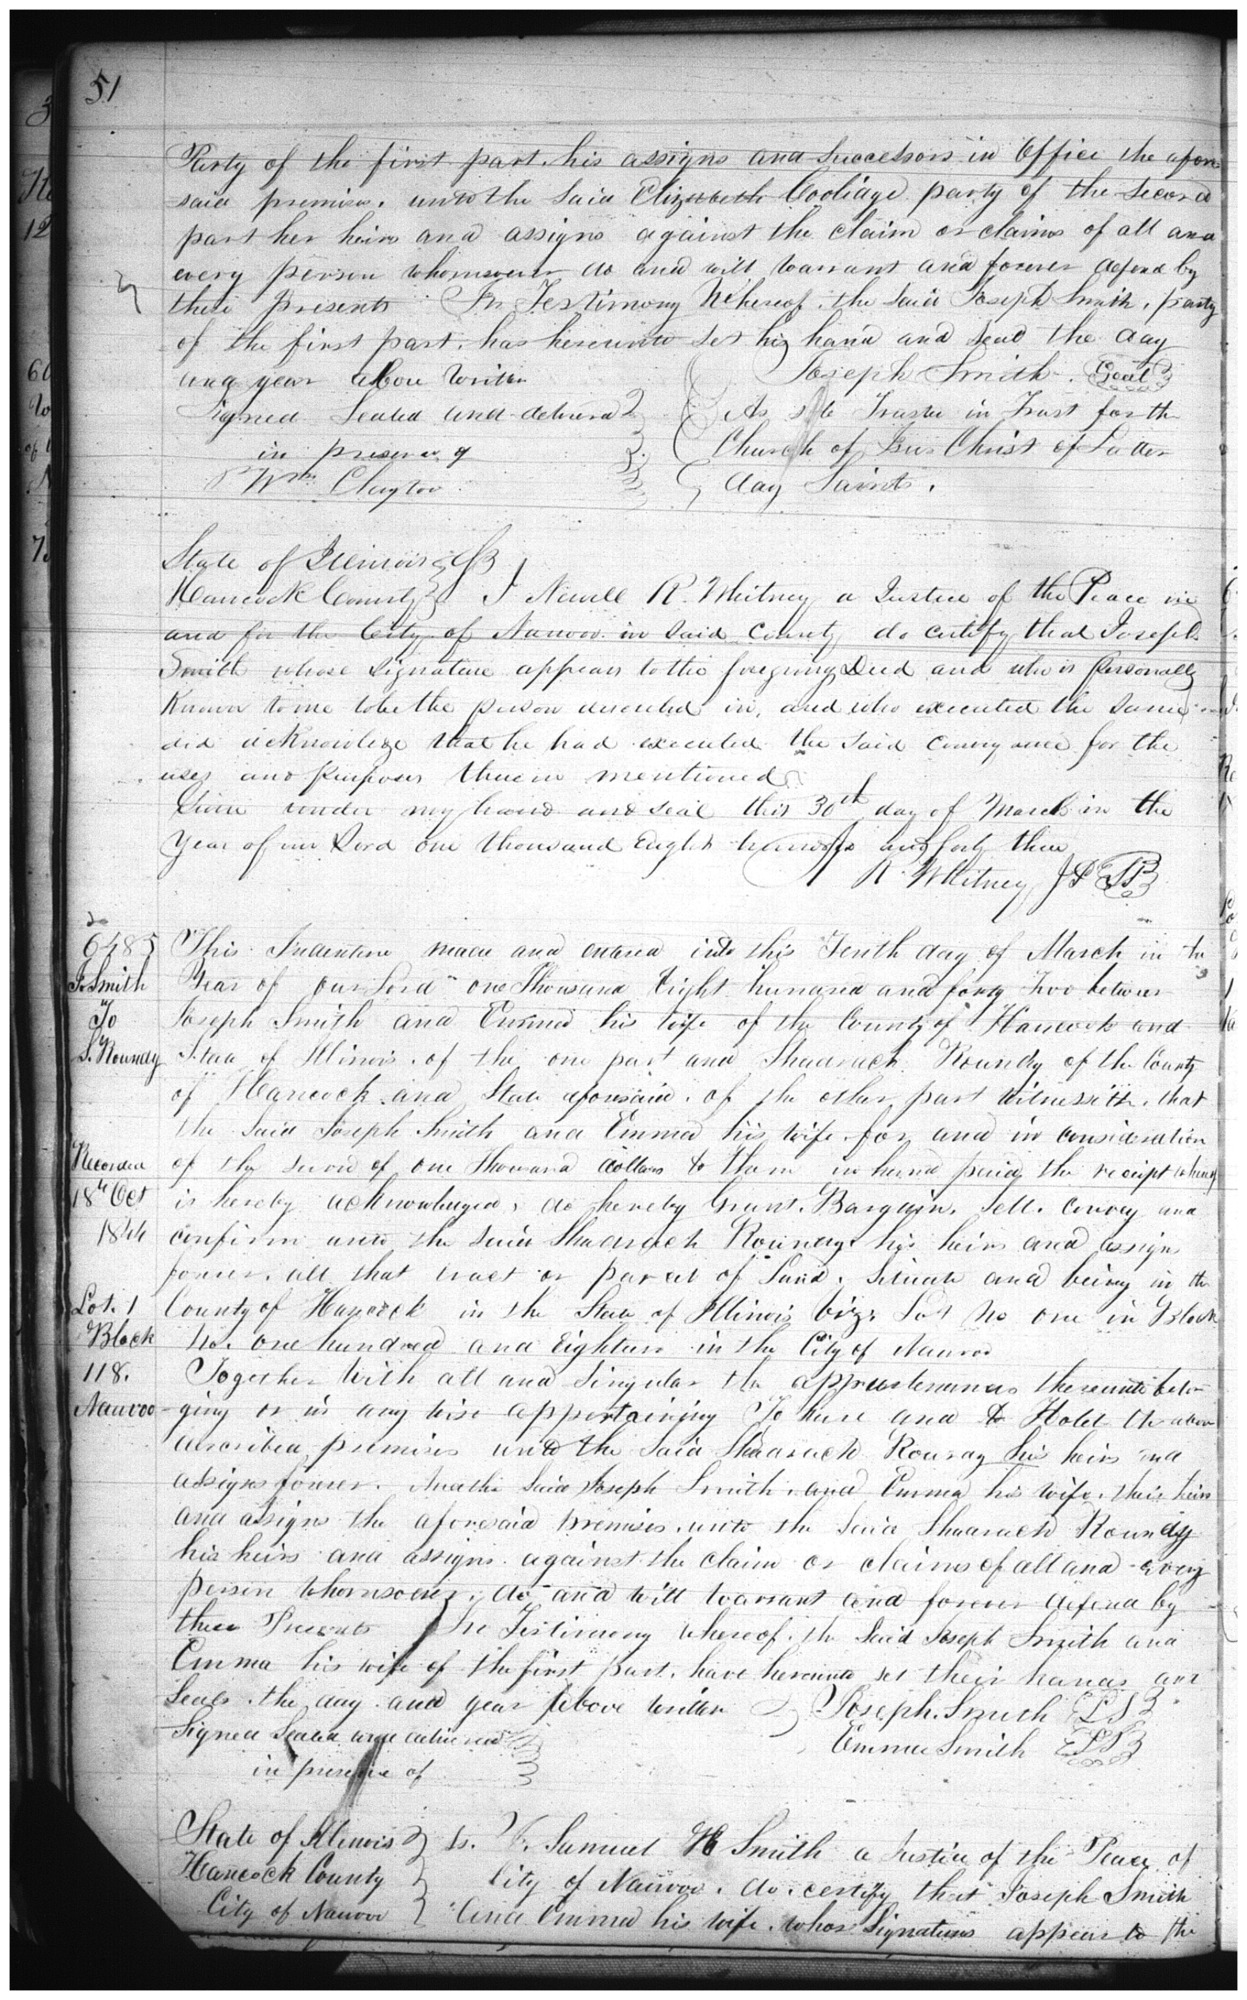 51
Party of the first part. his assigns and Successors in Office the afore
said premises. unto the said Elizabeth Coolidge party of the Second
part her heirs and assigns against the claim or claims of all and
every person whomsoever do and will warrant and forever defend by
these Presents In Testimony Whereof. the said Joseph Smith. party
of the first part. has hereunto set his hand and Seal the day
and year above Written
Joseph Smith. Seal
Signed Sealed and delivered
As sole Trustee in Trust for the
in presence of
Church of Jesus Christ of Latter
Wm Clayton
day Saints.
State of Illinois
Hancock County I Newell K. Whitney a Justice of the Peace in
and for the City of Nauvoo in said County do certify that Joseph
Smith whose Signature appears to the foregoing Deed and who is Personally
Known to me to be the person described in, and who executed the same
did acknowledge that he had executed the said conveyance for the
uses and purposes therein mentioned
Given under my hand and seal this 30th day of March in the
Year of our Lord one thousand Eight hundred and forty three
N. K. Whitney J P
6485
J. Smith
To
S. Roundy
Recorded
18th Oct
1844
Lot. 1
Block
118.
Nauvoo
This Indenture made and entered into this Tenth day of March in the
Year of our Lord one Thousand Eight hundred and forty Two between
Joseph Smith and Emma his Wife of the County of Hancock and
State of Illinois. of the one part and Shadrach Roundy of the County
of Hancock and State aforesaid. of the other part Witnesseth. that
the Said Joseph Smith and Emma his wife for and in consideration
of the sum of one Thousand dollars to them in hand paid the receipt whereof
is hereby acknowledged, do hereby Grant. Bargain. Sell. Convey and
confirm unto the said Shadrach Roundy his heirs and assigns
forever. all that tract or parcel of Land. Situate and being in the
County of Hancock in the State of Illinois viz. Lot No one in Block
No. one hundred and Eighteen in the City of Nauvoo
Together With all and Singular the appurtenances thereunto belon
ging or in any wise appertaining To have and to Hold the above
described premises unto the said Shadrach Roundy his heirs and
assigns forever. And the Said Joseph Smith and Emma his wife. their heirs
and assigns the aforesaid premises. unto the said Shadrach Roundy
his heirs and assigns against the claim or claims of all and every
person whomsoever. do and will warrant and forever defend by
these Presents In Testimony Whereof. the Said Joseph Smith and
Emma his wife of the first part. have hereunto set their hands and
Seals. the day and year above written Joseph. Smith L S
Signed Sealed and delivered Emma Smith L S
in presence of
State of Illinois ss. I. Samuel H Smith a Justice of the Peace of
Hancock County City of Nauvoo. do certify that Joseph Smith
City of Nauvoo and Emma his wife. whos Signatures appear to the